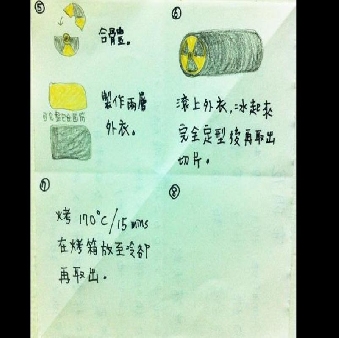 ⑤
合體。
製作兩層
外衣。
⑥
滾上外衣,冰起來
完全定型後再取出
切片。
⑦
烤 170°C/15 mins
在烤箱放至冷卻
再取出。
⑧